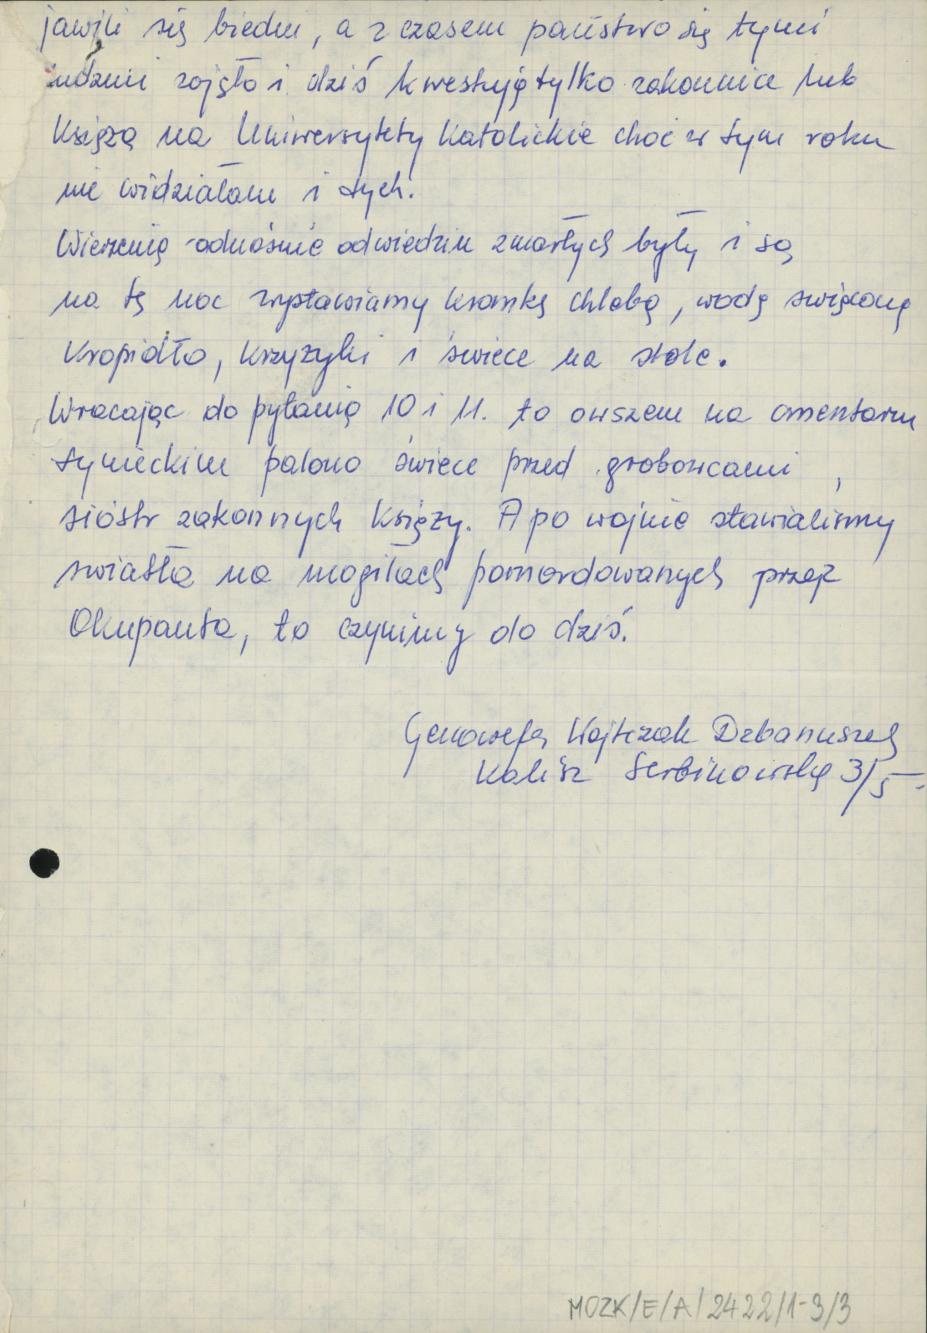 jawili się biedni, a z czasem państwo się tymi
ludźmi zajęło i dziś kwestują tylko zakonnice lub
Księża na Uniwersytety Katolickie choć w tym roku
nie widziałam i tych.
Wierzenia odnośnie odwiedzin zmarłych były i są
na tę noc wystawiamy kromkę chleba, wodę święconą
kropidło, krzyżyki i świece na stole.
Wracając do pytania 10 i 11. to owszem na cmentarzu
tynieckim palono świece przed grobowcami,
sióstr zakonnych Księży. A po wojnie stawialiśmy
światła na mogiłach pomordowanych przez
Okupanta, to czynimy do dziś.
Genowefa Wojtczak Dzbanuszek
Kalisz Serbinowska 3/5
MOZK/E/A/2422/1-3/3